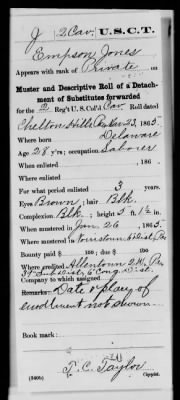 J 2 Cav. U.S.C.T.
Empson Jones
Appears with rank of Private on
Muster and Descriptive Roll of a Detach-
ment of Substitutes forwarded
for the 2 Reg't U.S. Col'd Cav Roll dated
Chelton Hills Pa Mar 23, 1865.
Where born Delaware
Age 28 y'rs; occupation Laborer
When enlisted , 186 .
Where enlisted
For what period enlisted 3 years.
Eyes Brown; hair Blk.
Complexion Blk.; height 5 ft. 1½ in.
When mustered in Jan 26, 1865.
Where mustered in Dist. Pa
Bounty paid $ 100; due $ 100
Where credited Allentown 2 W, Pa
6 Cong. Dist.
Company to which assigned
Remarks: Date & place of
enrollment not shown
Book mark:
T. C. Taylor
(340b) Copyist.